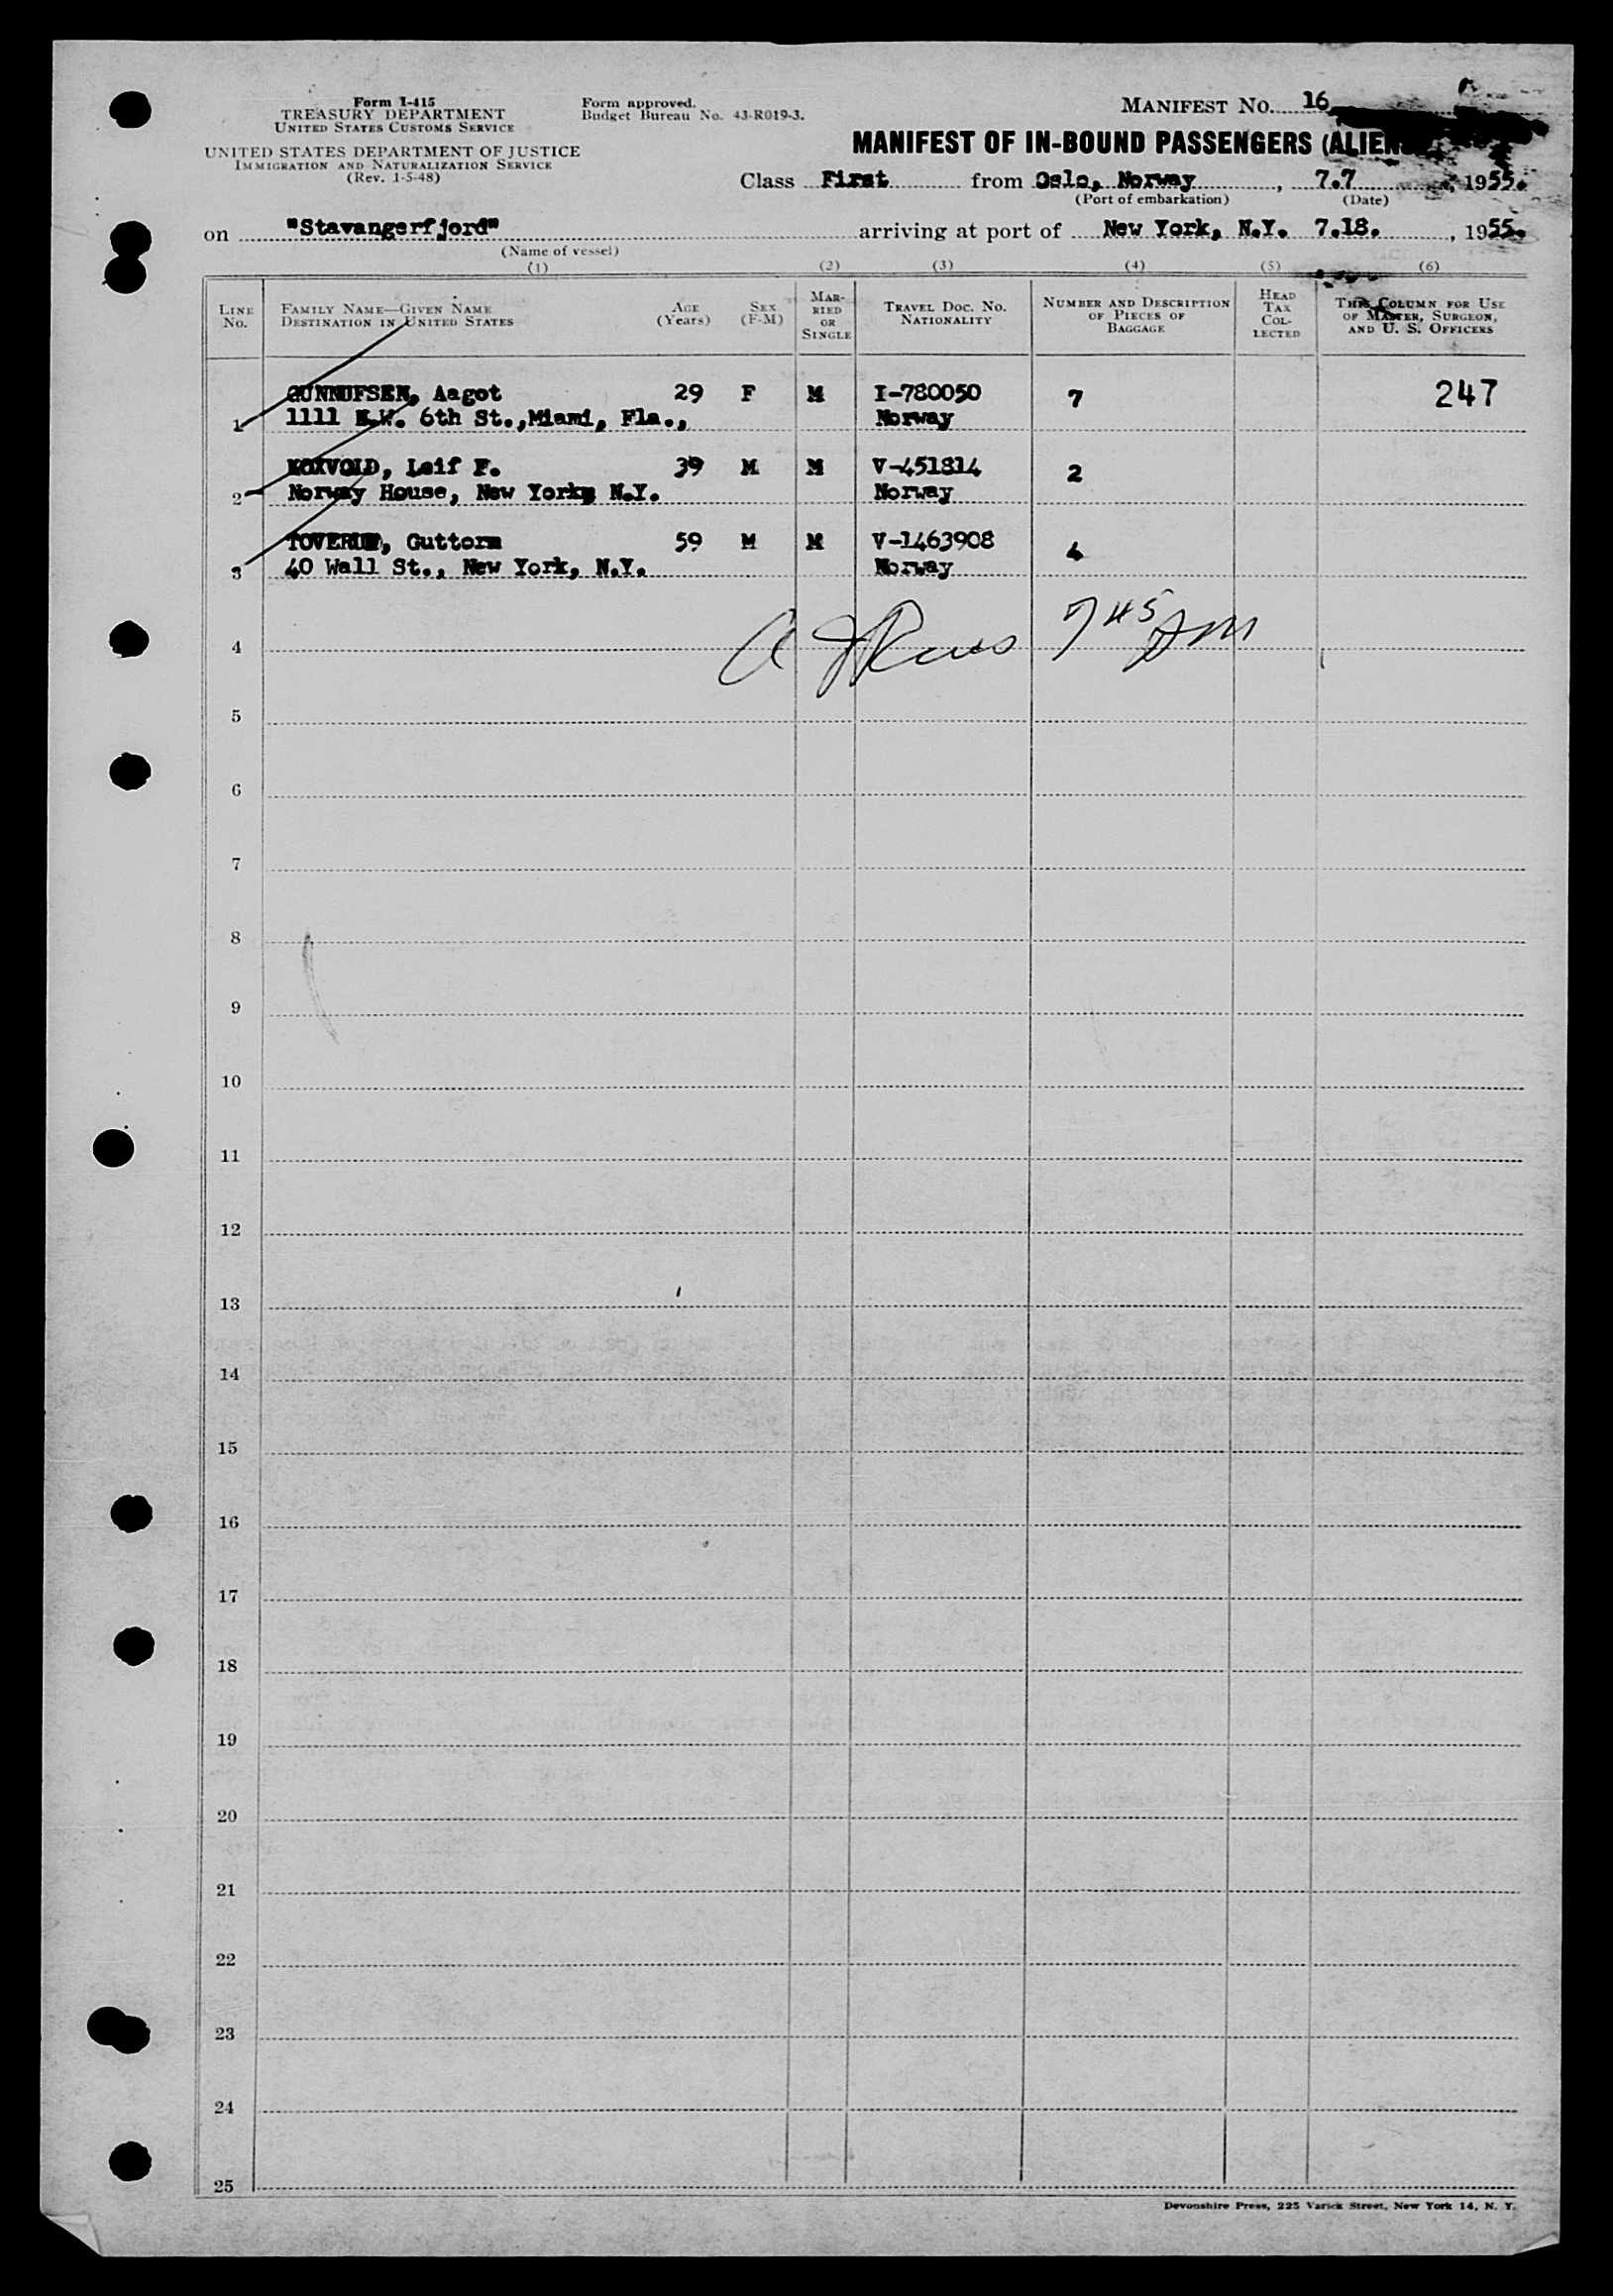 Form I-415
TREASURY DEPARTMENT
UNITED STATES CUSTOMS SERVICE
UNITED STATES DEPARTMENT OF JUSTICE
IMMIGRATION AND NATURALIZATION SERVICE
(Rev. 1-5-48)
Form approved.
Budget Bureau No. 43-R019-3.
MANIFEST NO. 16
MANIFEST OF IN-BOUND PASSENGERS (ALIENS
Class First from Oslo, Norway, 7.7, 1955.
(Port of embarkation) (Date)
on "Stavangerfjord" arriving at port of New York, N.Y. 7.18., 1955.
(Name of vessel)
(1) (2) (3) (4) (5) (6)
LINE NO. FAMILY NAME—GIVEN NAME DESTINATION IN UNITED STATES AGE (Years) SEX (F-M) MARRIED OR SINGLE TRAVEL DOC. NO. NATIONALITY NUMBER AND DESCRIPTION OF PIECES OF BAGGAGE HEAD TAX COLLECTED THIS COLUMN FOR USE OF MASTER, SURGEON, AND U. S. OFFICERS
GUNNUFSEN, Aagot 29 F M I-780050 7 247
1 1111 N.W. 6th St., Miami, Fla., Norway
KOXVOLD, Leif F. 39 M M V-451814 2
2 Norway House, New York, N.Y. Norway
TOVERUD, Guttorm 59 M M V-1463908 4
3 40 Wall St., New York, N.Y. Norway
7 45 PM
4
5
6
7
8
9
10
11
12
13
14
15
16
17
18
19
20
21
22
23
24
25
Devonshire Press, 225 Varick Street, New York 14, N. Y.